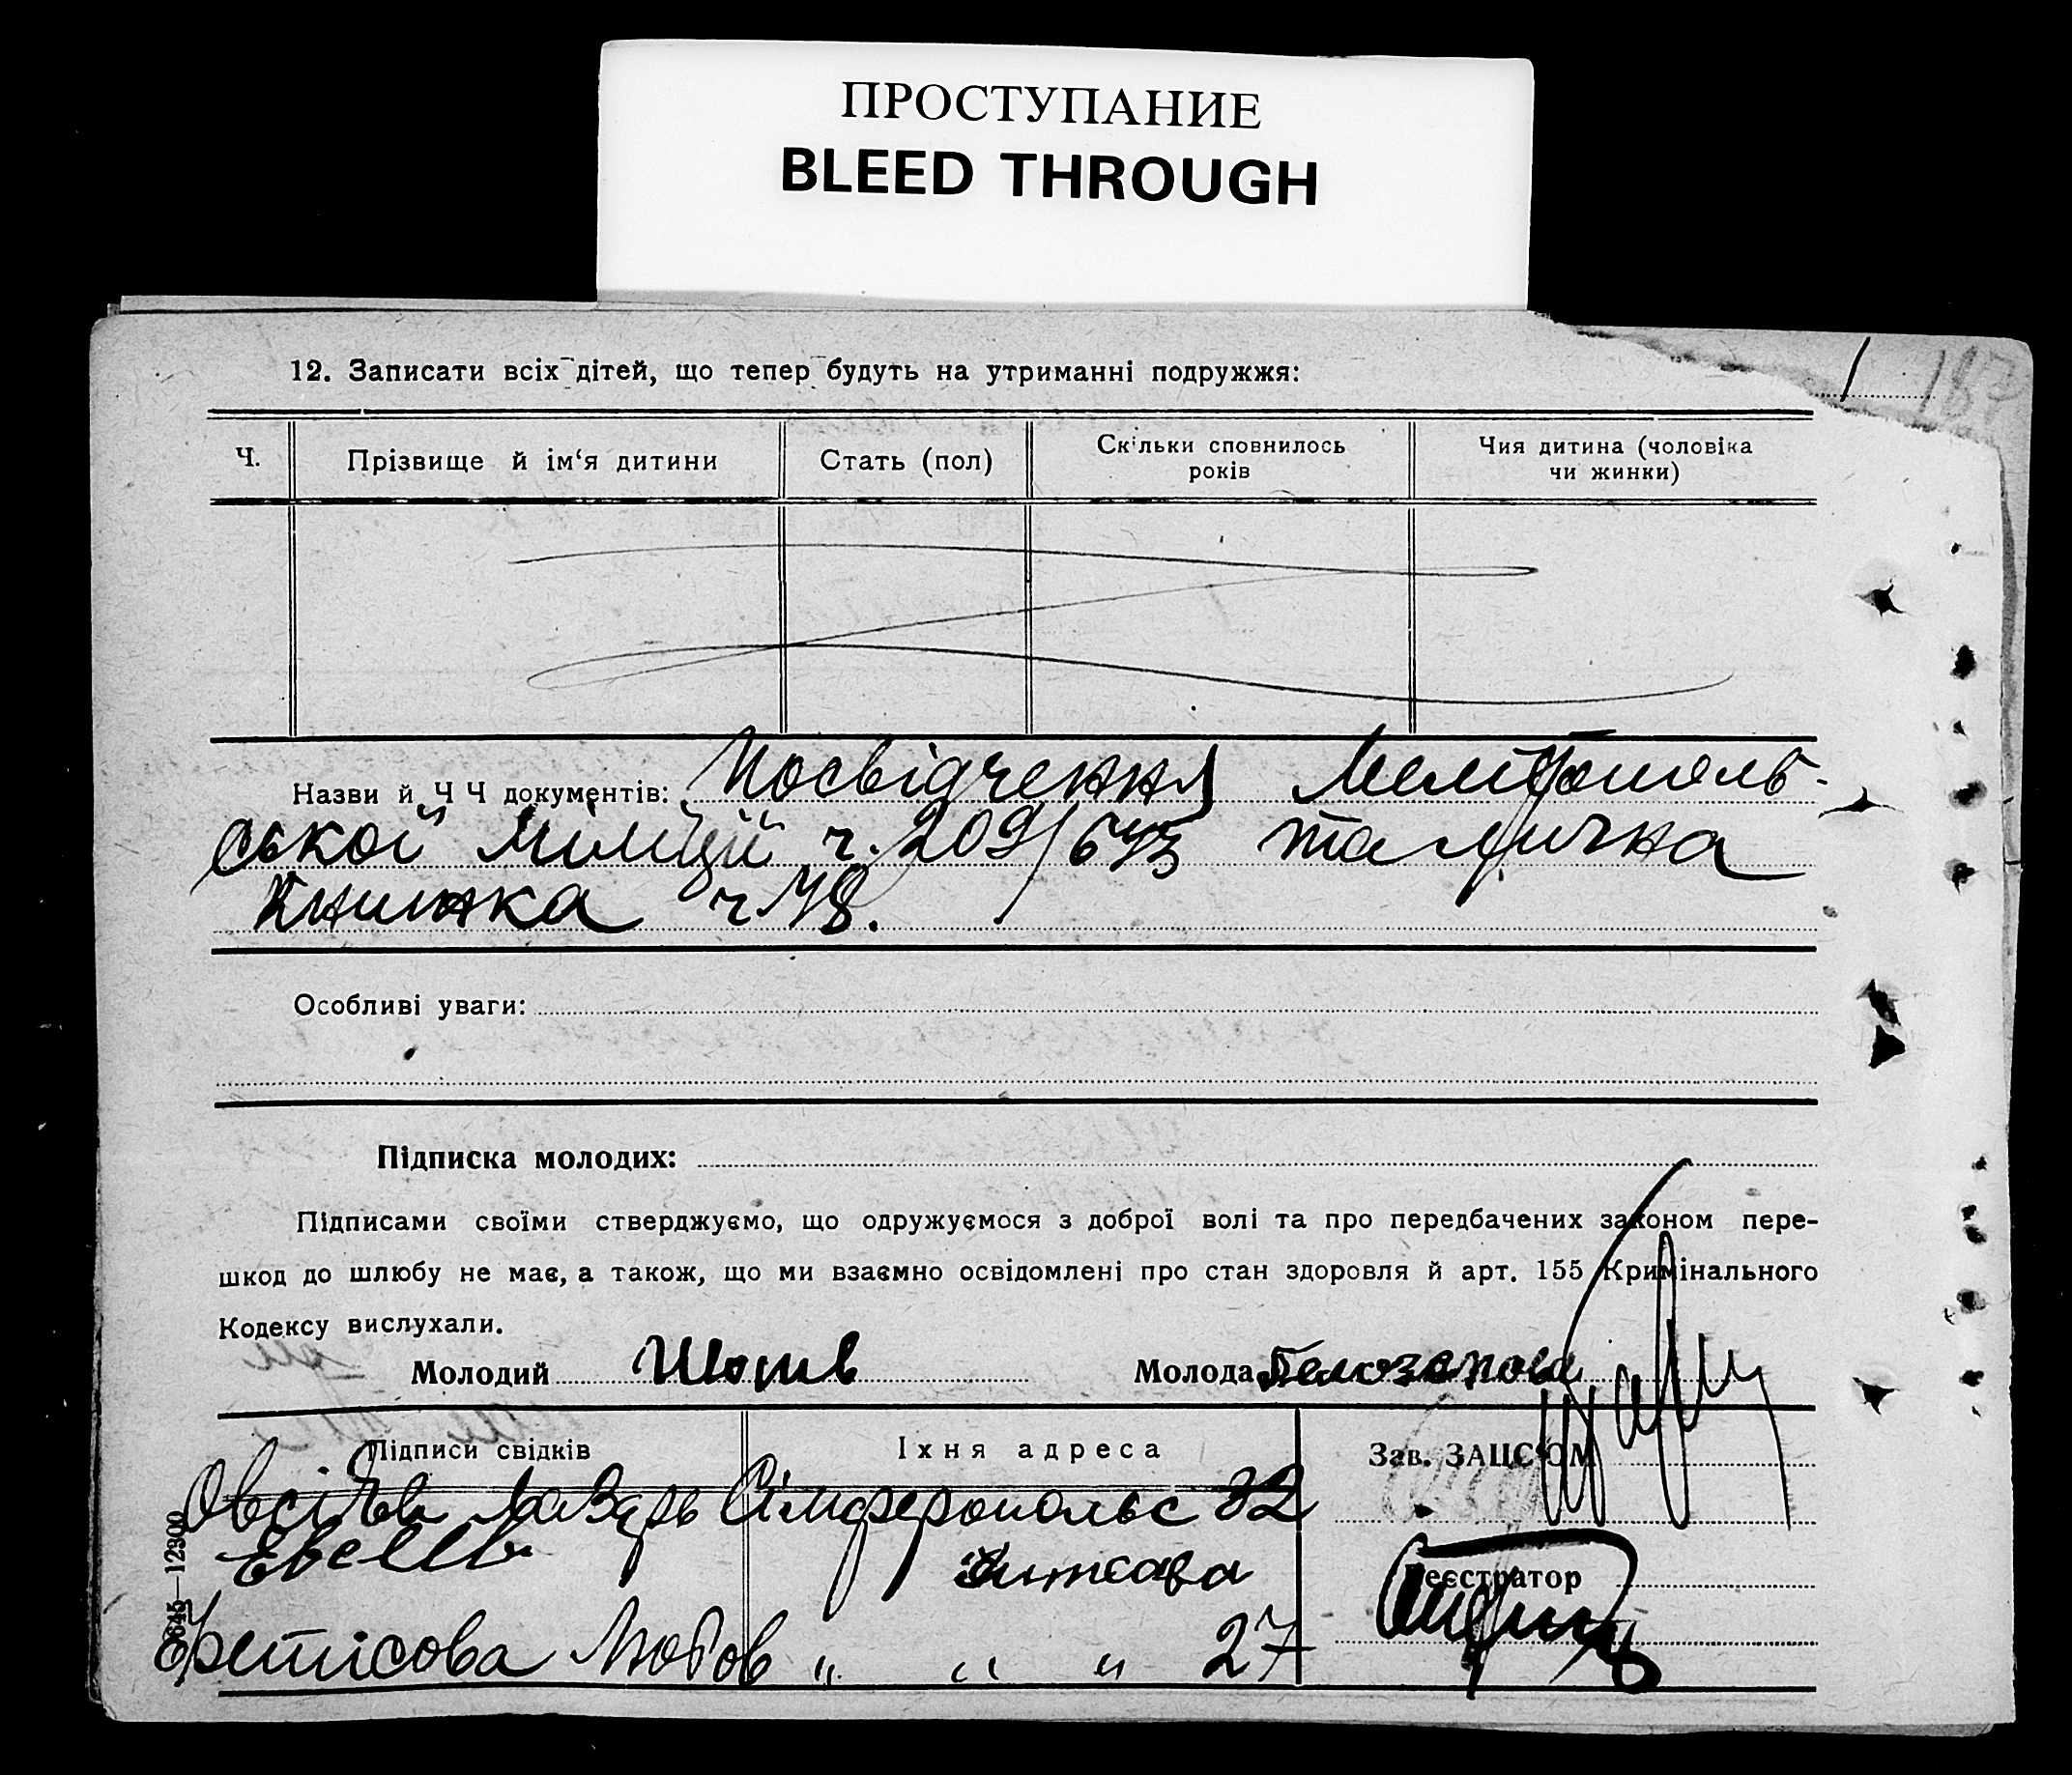 ПРОСТУПАНИЕ
BLEED THROUGH
187
12. Записати всіх дітей, що тепер будуть на утриманні подружжя:
Ч.
Прізвище й ім‘я дитини
Стать (пол)
Скільки сповнилось
років
Чия дитина (чоловіка
чи жинки)
Назви й Ч Ч документів: Посвідчення Мелітополь-
ської міліції ч. 209/673 та лічна
книжка ч 78.
Особливі уваги:
Підписка молодих:
Підписами своїми стверджуємо, що одружуємося з доброї волі та про передбачених законом пере-
шкод до шлюбу не має, а також, що ми взаємно освідомлені про стан здоровля й арт. 155 Кримінального
Кодексу вислухали.
Молодий
Молода Белозерова
Підписи свідків
Їхня адреса
Зав. ЗАЦС‘ОМ
Лазарь Сімферопольс 32
Реєстратор
Фетисова Любов „ „ „ 27
6645—12900